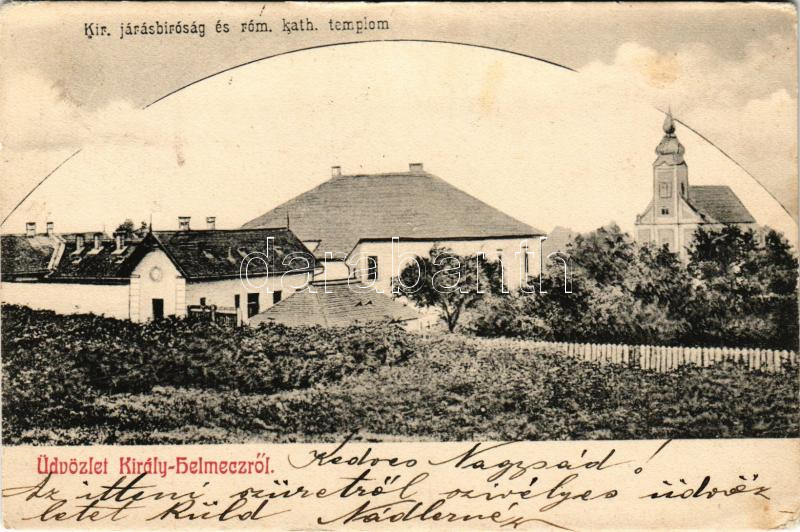 Kir. járásbiróság és róm. kath. templom
darabanth
Üdvözlet Király-Helmeczről.
Kedves Nagysád!
Az itteni szüretről szivélyes üdvöz
letet küld Nádlerné